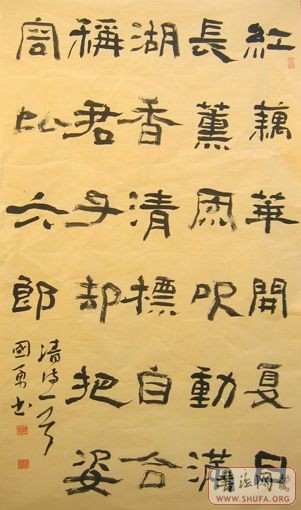 紅藕華開夏日
長薰風吹動滿
湖香清標自合
稱君子却把姿
容比六郎
清诗一首
國勇书
WWW.SHUFA.ORG